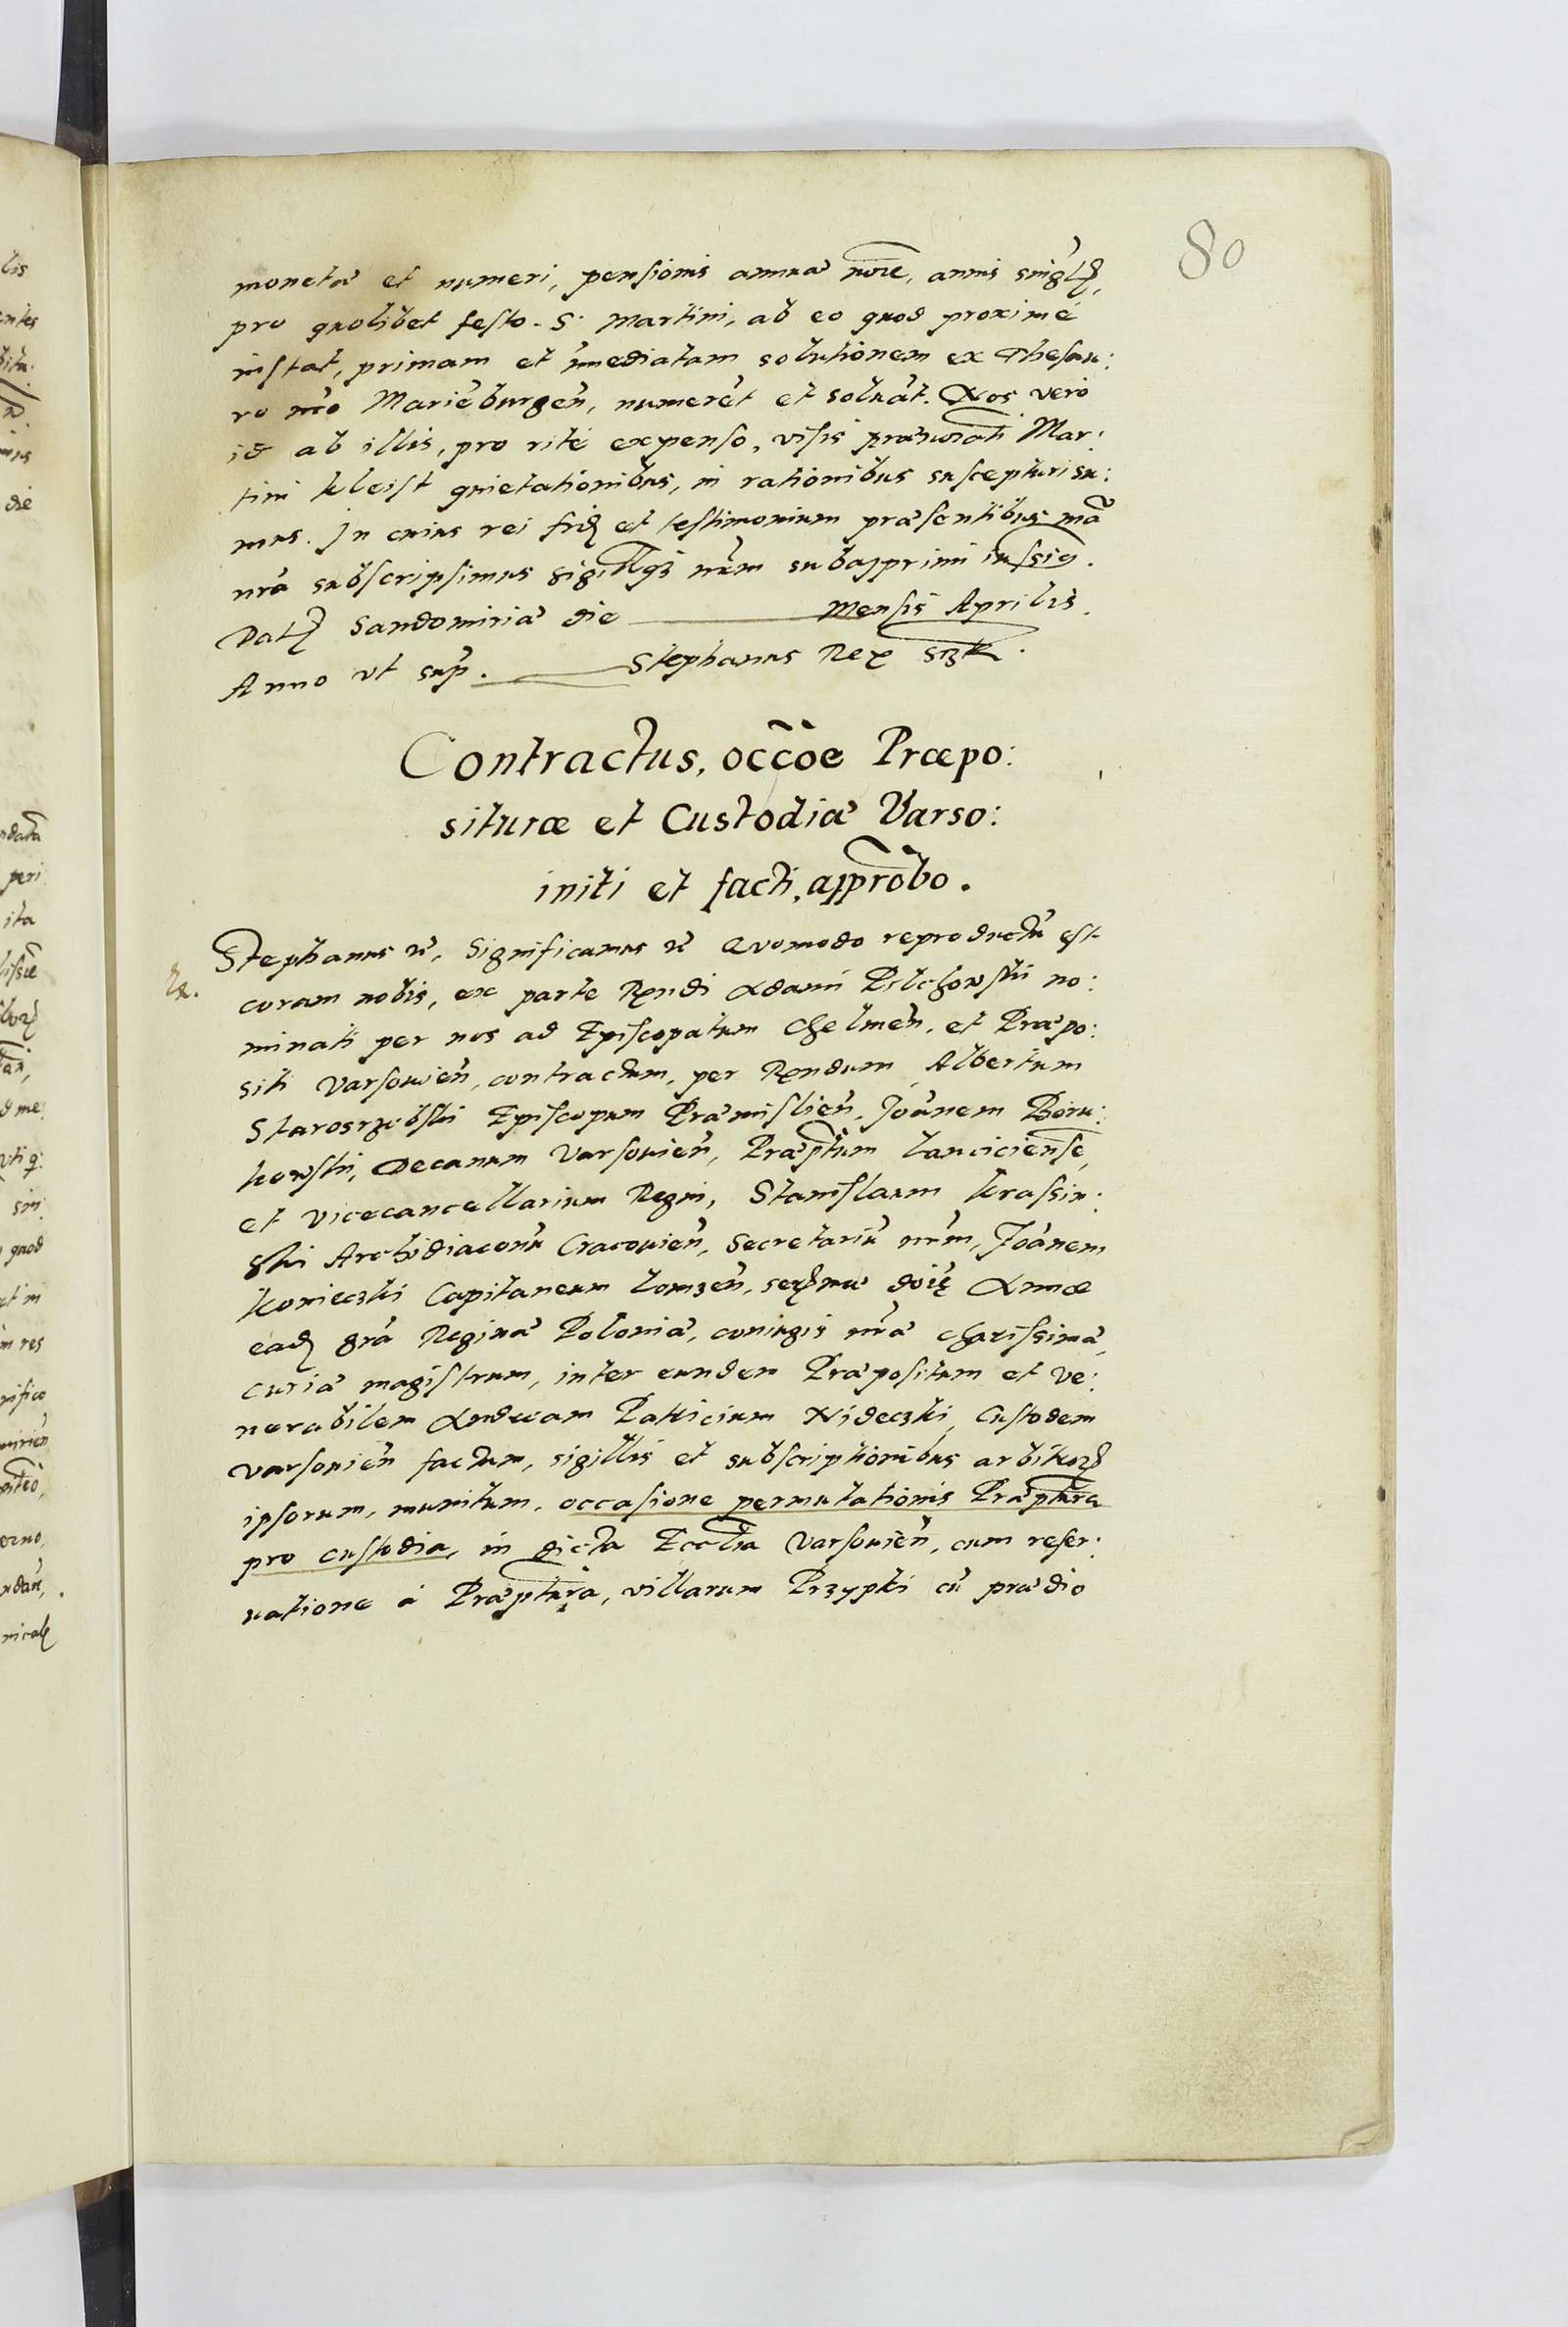 80
monetæ et numeri, pensionis annuæ noīe, annis singul̃,
pro quolibet festo S. Martini, ab eo quod proximè
instat, primam et īmediatam solutionem ex Thesau:
ro nr̄o Mariēburgeñ, numerēt et soluāt. Nos verò
id ab illis, pro ritè expenso, visis prænoīati Mar:
tini Kleist quietationibus, in rationibus suscepturi su:
mus. In cuius rei fid̃ et testimonium præsentibus mãn
nr̄a subscripsimus sigillq3 nr̄um subapprimi iussim̃.
Dat̃ Sandomiriæ die Mensis Aprilis.
Anno vt sup̃. Stephanus Rex sszt.
Contractus, occõe Præpo:
situræ et Custodiæ Varso:
initi et facti, approbõ.
Stephanus rc̃, Significamus rc̃ Quomodo reproductū est
coram nobis, ex parte Rṇdi Adami Pilchowski no:
minati per nos ad Episcopatum Chelmeñ, et Præpo:
siti Varsouieñ, contractum, per Rṇdum Albertum
Starosrzebski Episcopum Præmislieñ, Joānem Boru:
kowski, Decanum Varsouieñ, Præptum Lanciciense,
et Vicecancellarium Regni, Stanislaum Krasin:
ski Archidiaconū Cracouieñ, Secretariū nr̄m, Joānem
Konieczki Capitaneum Lomzeñ, serēmæ doīę Annæ
ead̃ gr̄a Reginæ Poloniæ, coniugis nr̄æ charissimæ,
curiæ magistrum, inter eundem Præpositum et Ve:
nerabilem Andream Patricium Nideczki, Custodem
Varsouieñ factum, sigillis et subscriptionibus arbitror̃
ipsorum, munitum, occasione permutationis Præpturæ
pro custodia, in dicta Ecctia Varsouieñ, cum reser:
uatione à Præptura, villarum Przypki cū prædio